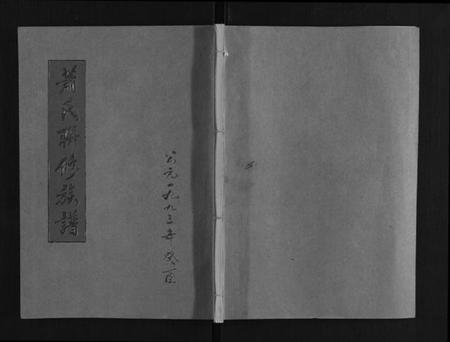 蕭氏聯修族譜
公元一九九三年癸酉